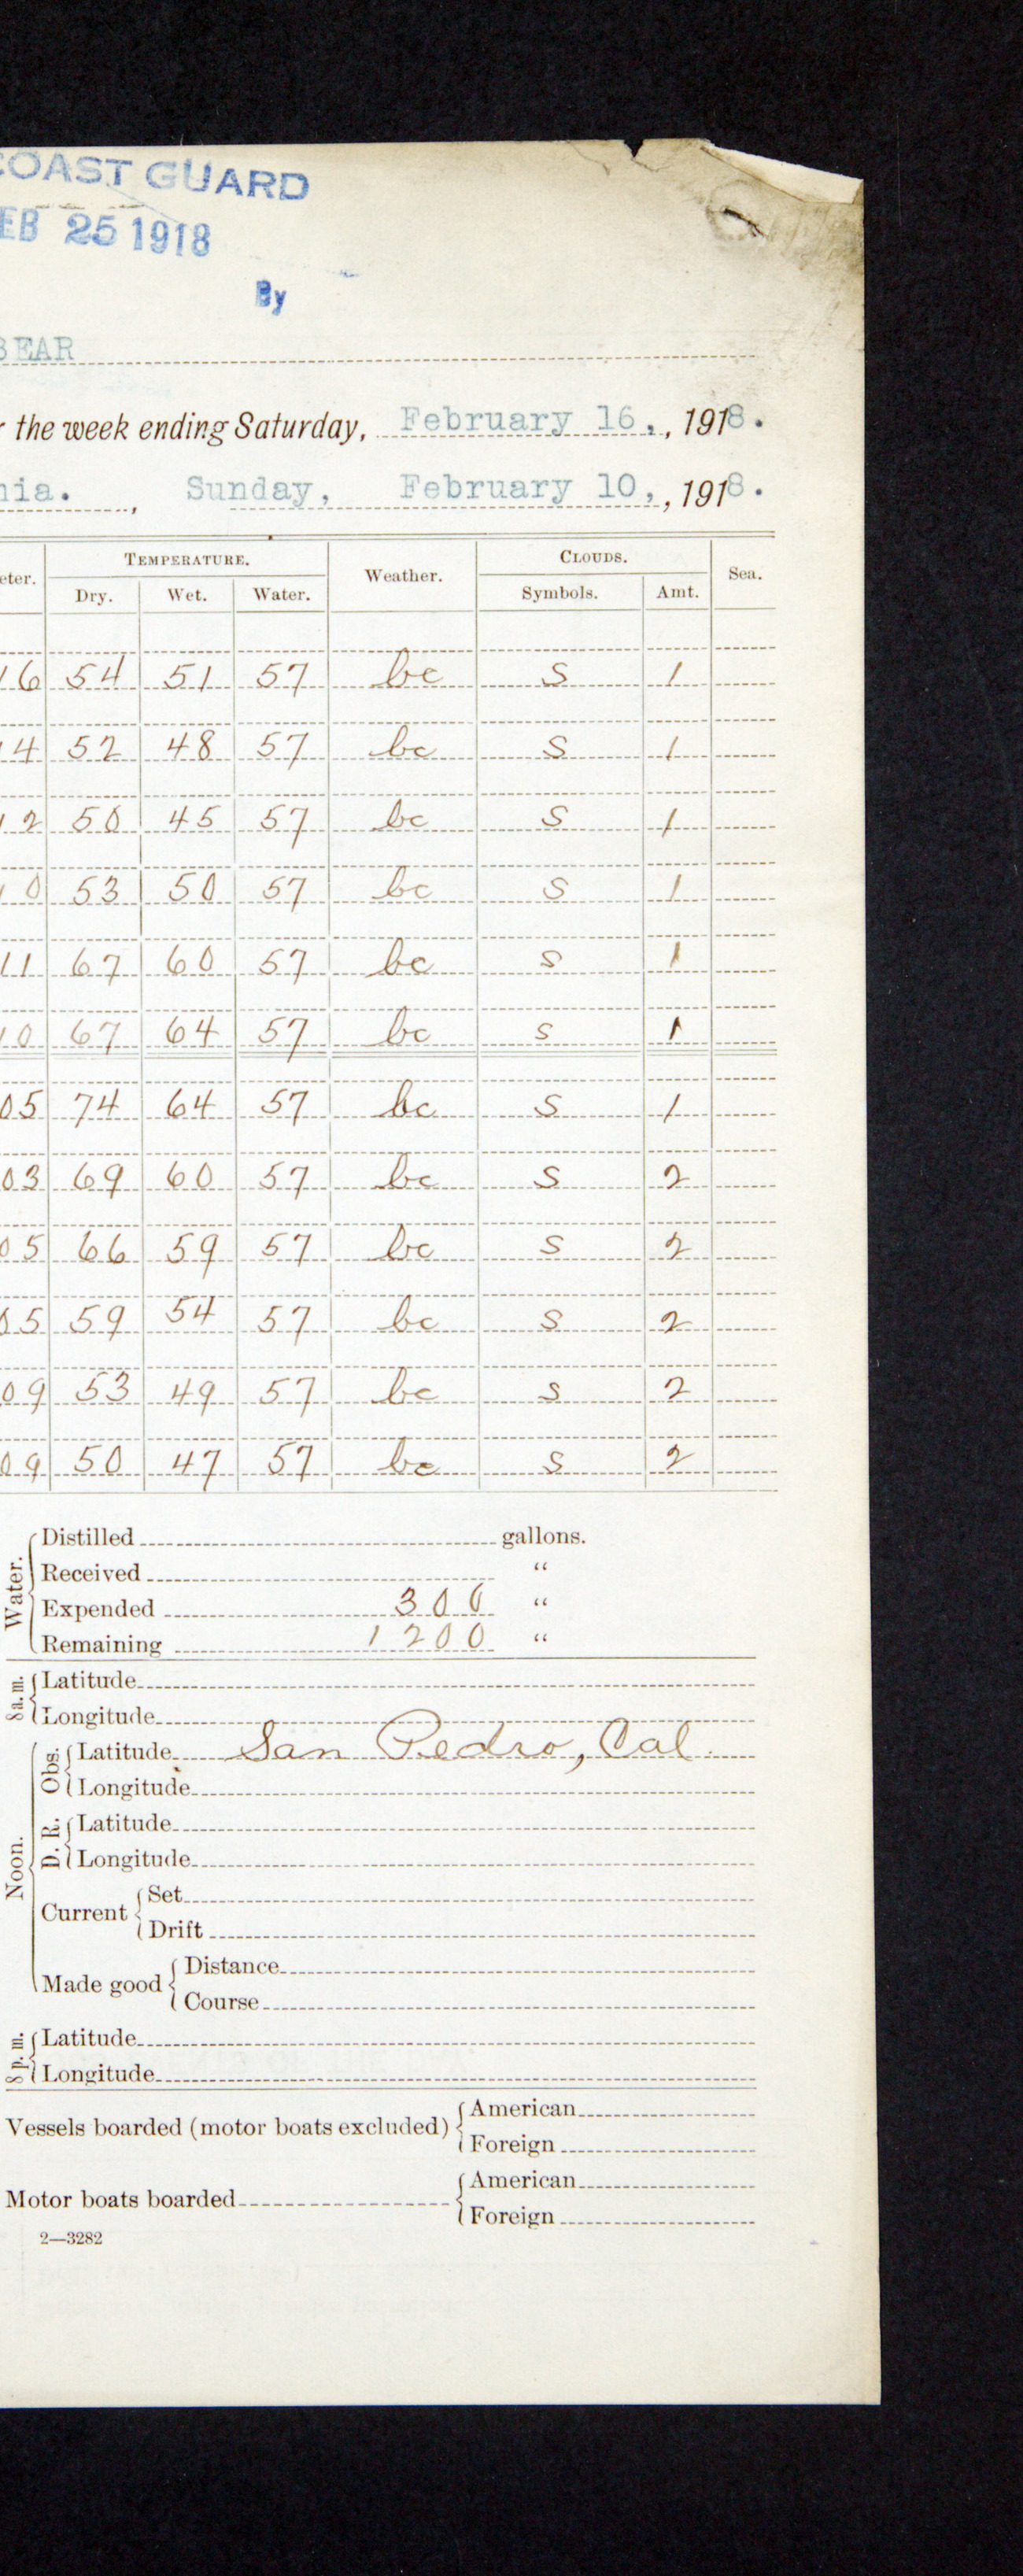 COAST GUARD
EB 25 1918
By
BEAR
the week ending Saturday, February 16, , 1918.
nia. , Sunday, February 10, , 1918.
eter. TEMPERATURE. Weather. CLOUDS. Sea.
Dry. Wet. Water. Symbols. Amt.
16 54 51 57 bc S 1
14 52 48 57 bc S 1
12 50 45 57 bc S 1
10 53 50 57 bc S 1
11 67 60 57 bc S 1
10 67 64 57 bc S 1
05 74 64 57 bc S 1
03 69 60 57 bc S 2
05 66 59 57 bc S 2
05 59 54 57 bc S 2
09 53 49 57 bc S 2
09 50 47 57 bc S 2
Water. Distilled gallons.
Received "
Expended 300 "
Remaining 1200 "
8 a. m. Latitude
Longitude
Noon. Obs. Latitude San Pedro, Cal.
Longitude
D. R. Latitude
Longitude
Current Set
Drift
Made good Distance
Course
8 p. m. Latitude
Longitude
Vessels boarded (motor boats excluded) American
Foreign
Motor boats boarded American
Foreign
2—3282